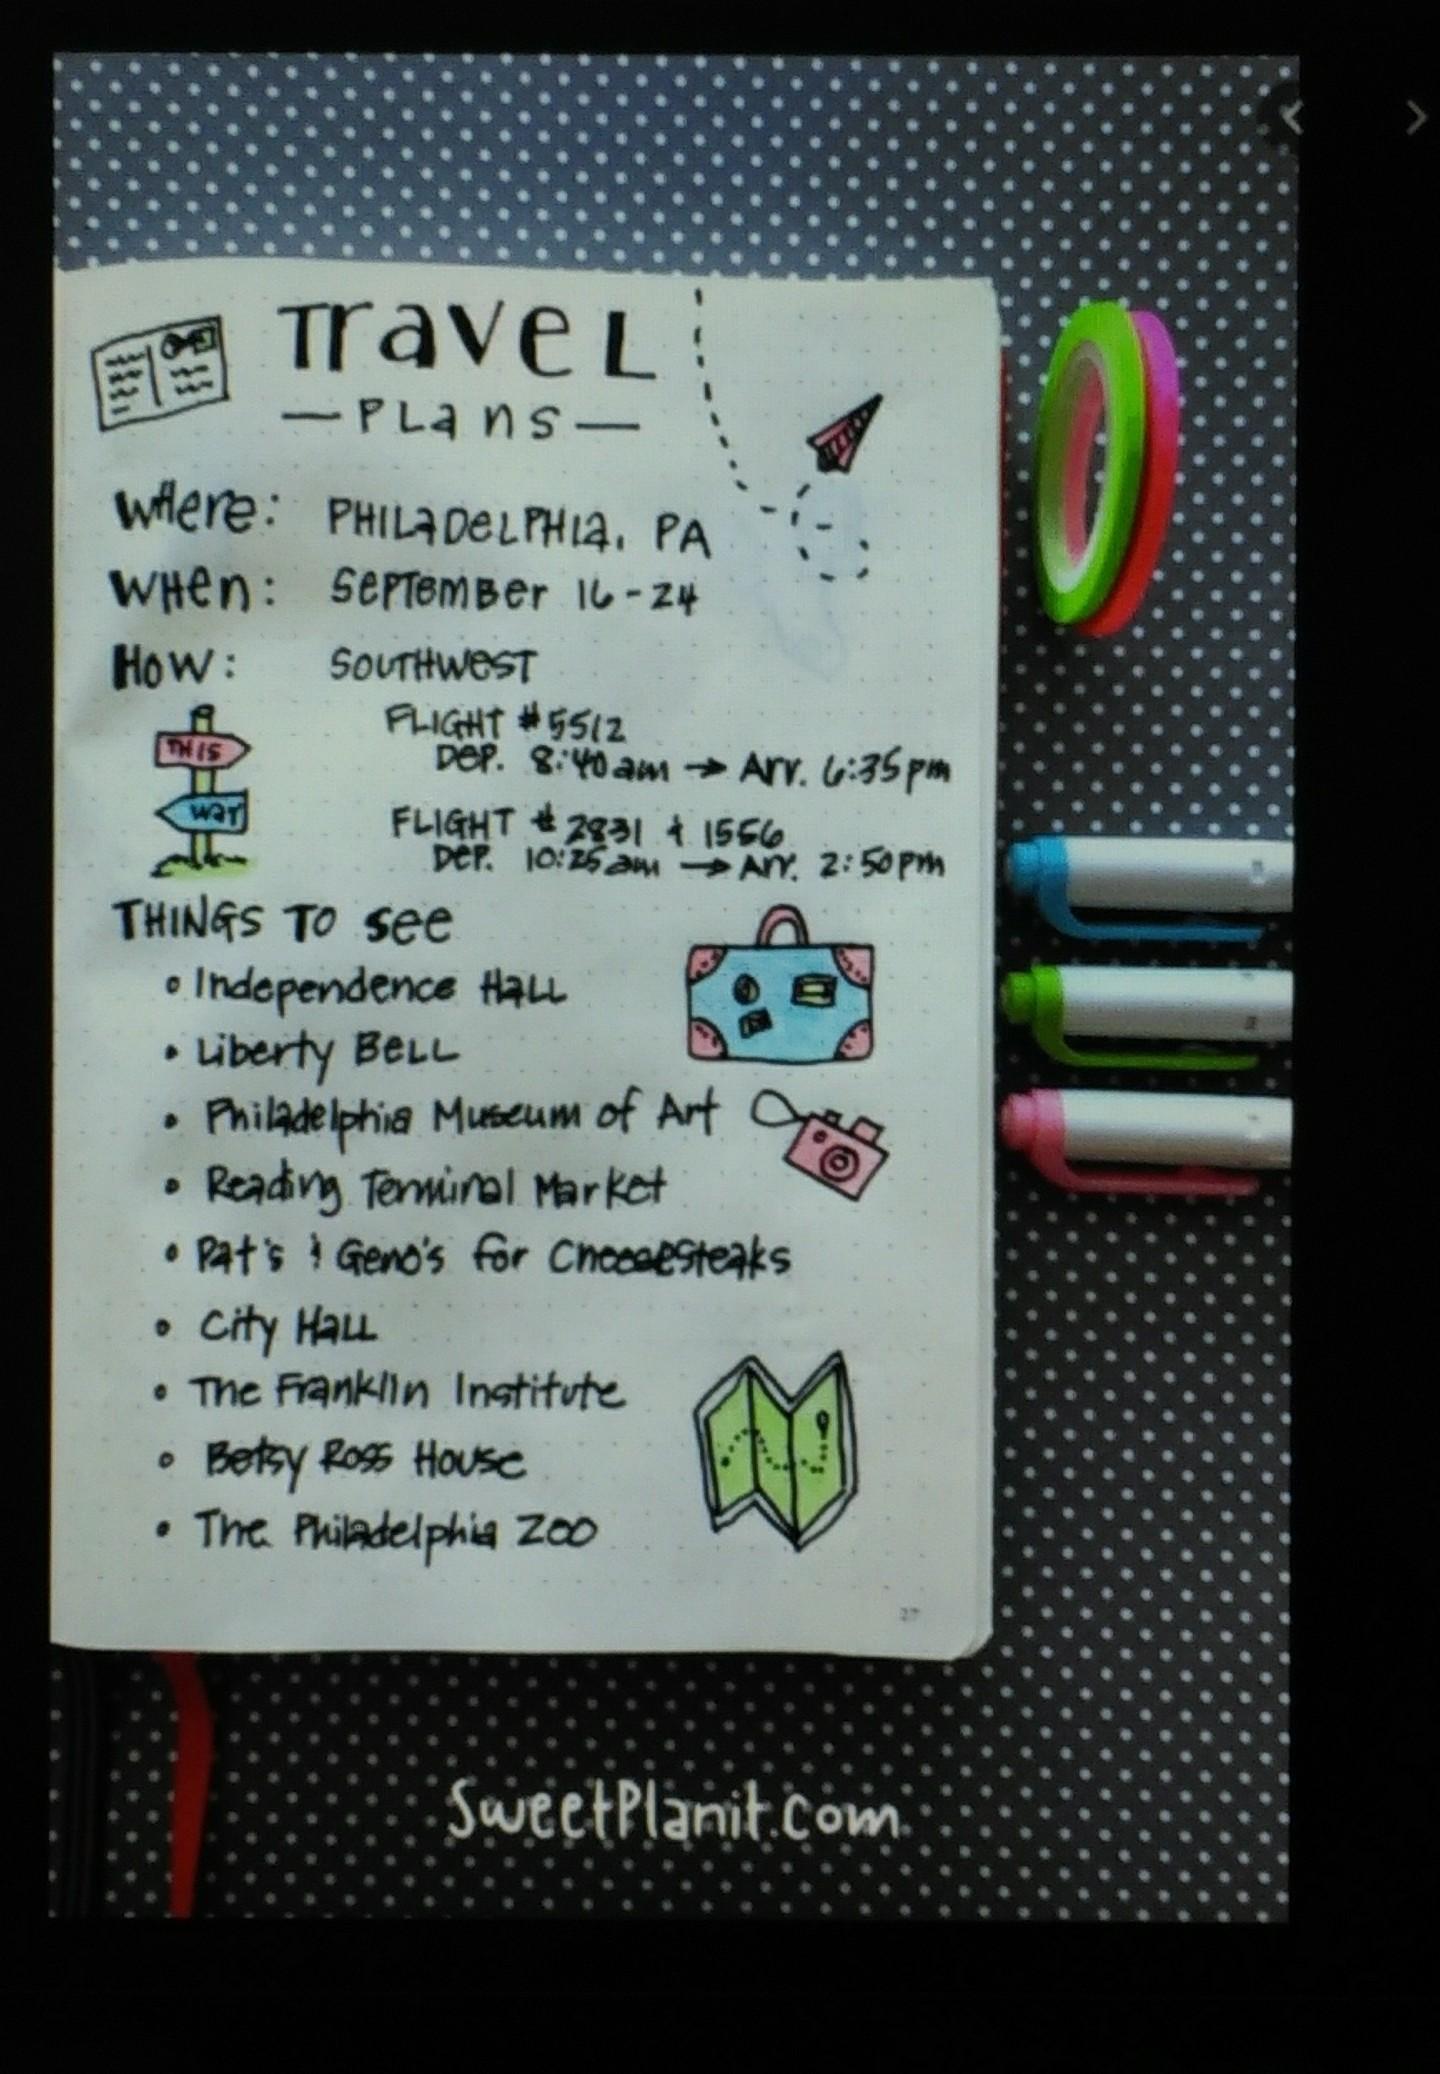 Travel
— Plans —
Where: Philadelphia, PA
When: September 16-24
How: Southwest
This
Way
Flight #5512
Dep. 8:40am → Arr. 6:35pm
Flight #2831 & 1556
Dep. 10:25am → Arr. 2:50pm
Things to see
• Independence Hall
• Liberty Bell
• Philadelphia Museum of Art
• Reading Terminal Market
• Pat's & Geno's for Cheesesteaks
• City Hall
• The Franklin Institute
• Betsy Ross House
• The Philadelphia Zoo
27
SweetPlanit.com